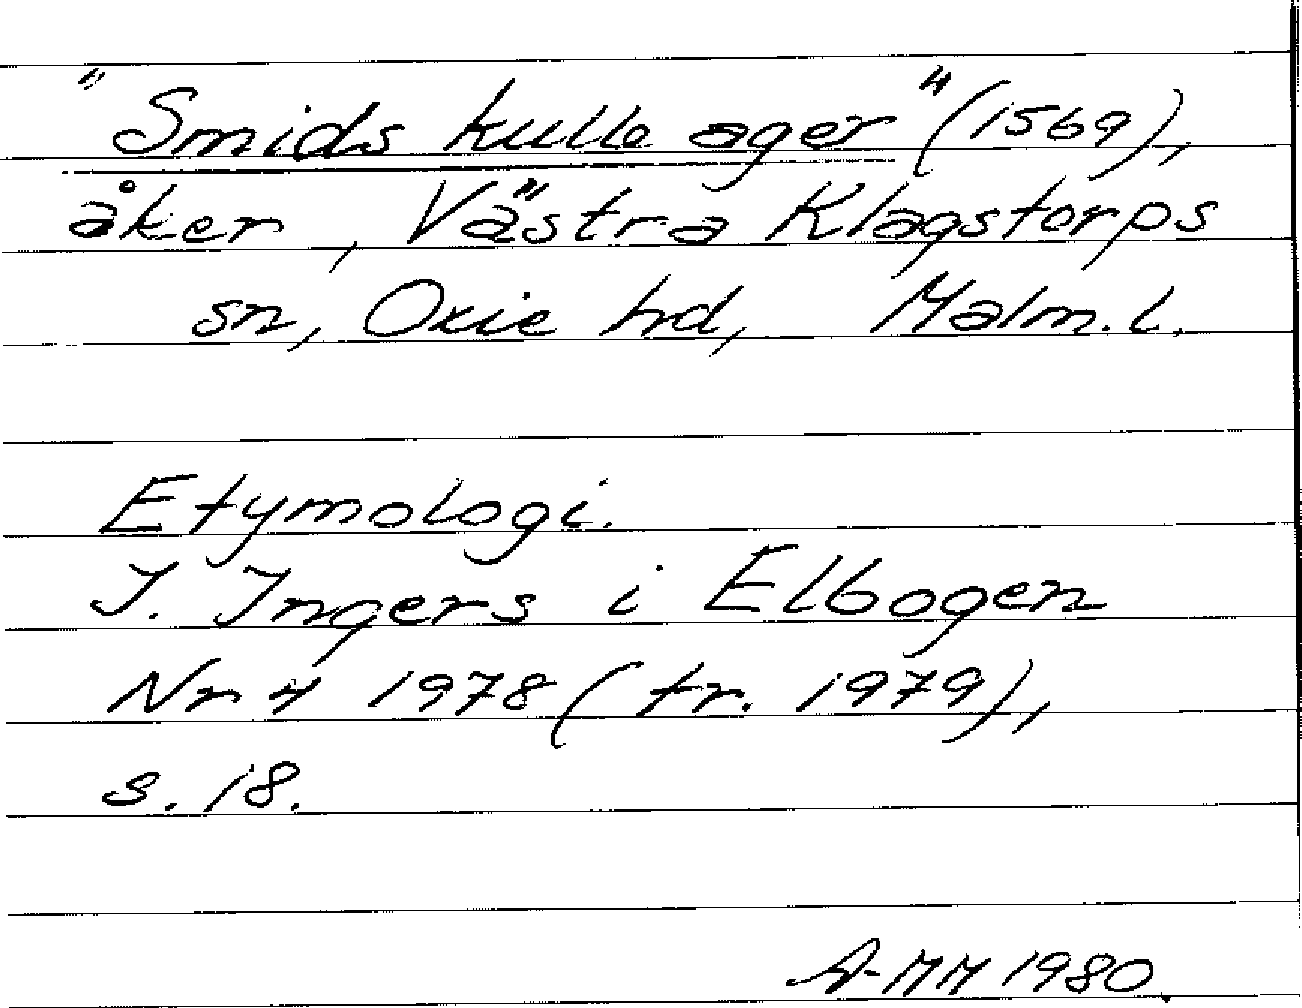 "Smids kulle ager" (1569),
åker, Västra Klagstorps
sn, Oxie hd, Malm. l.
Etymologi.
I. Ingers i Elbogen
Nr 4 1978 (tr. 1979),
s. 18.
A-MM 1980.